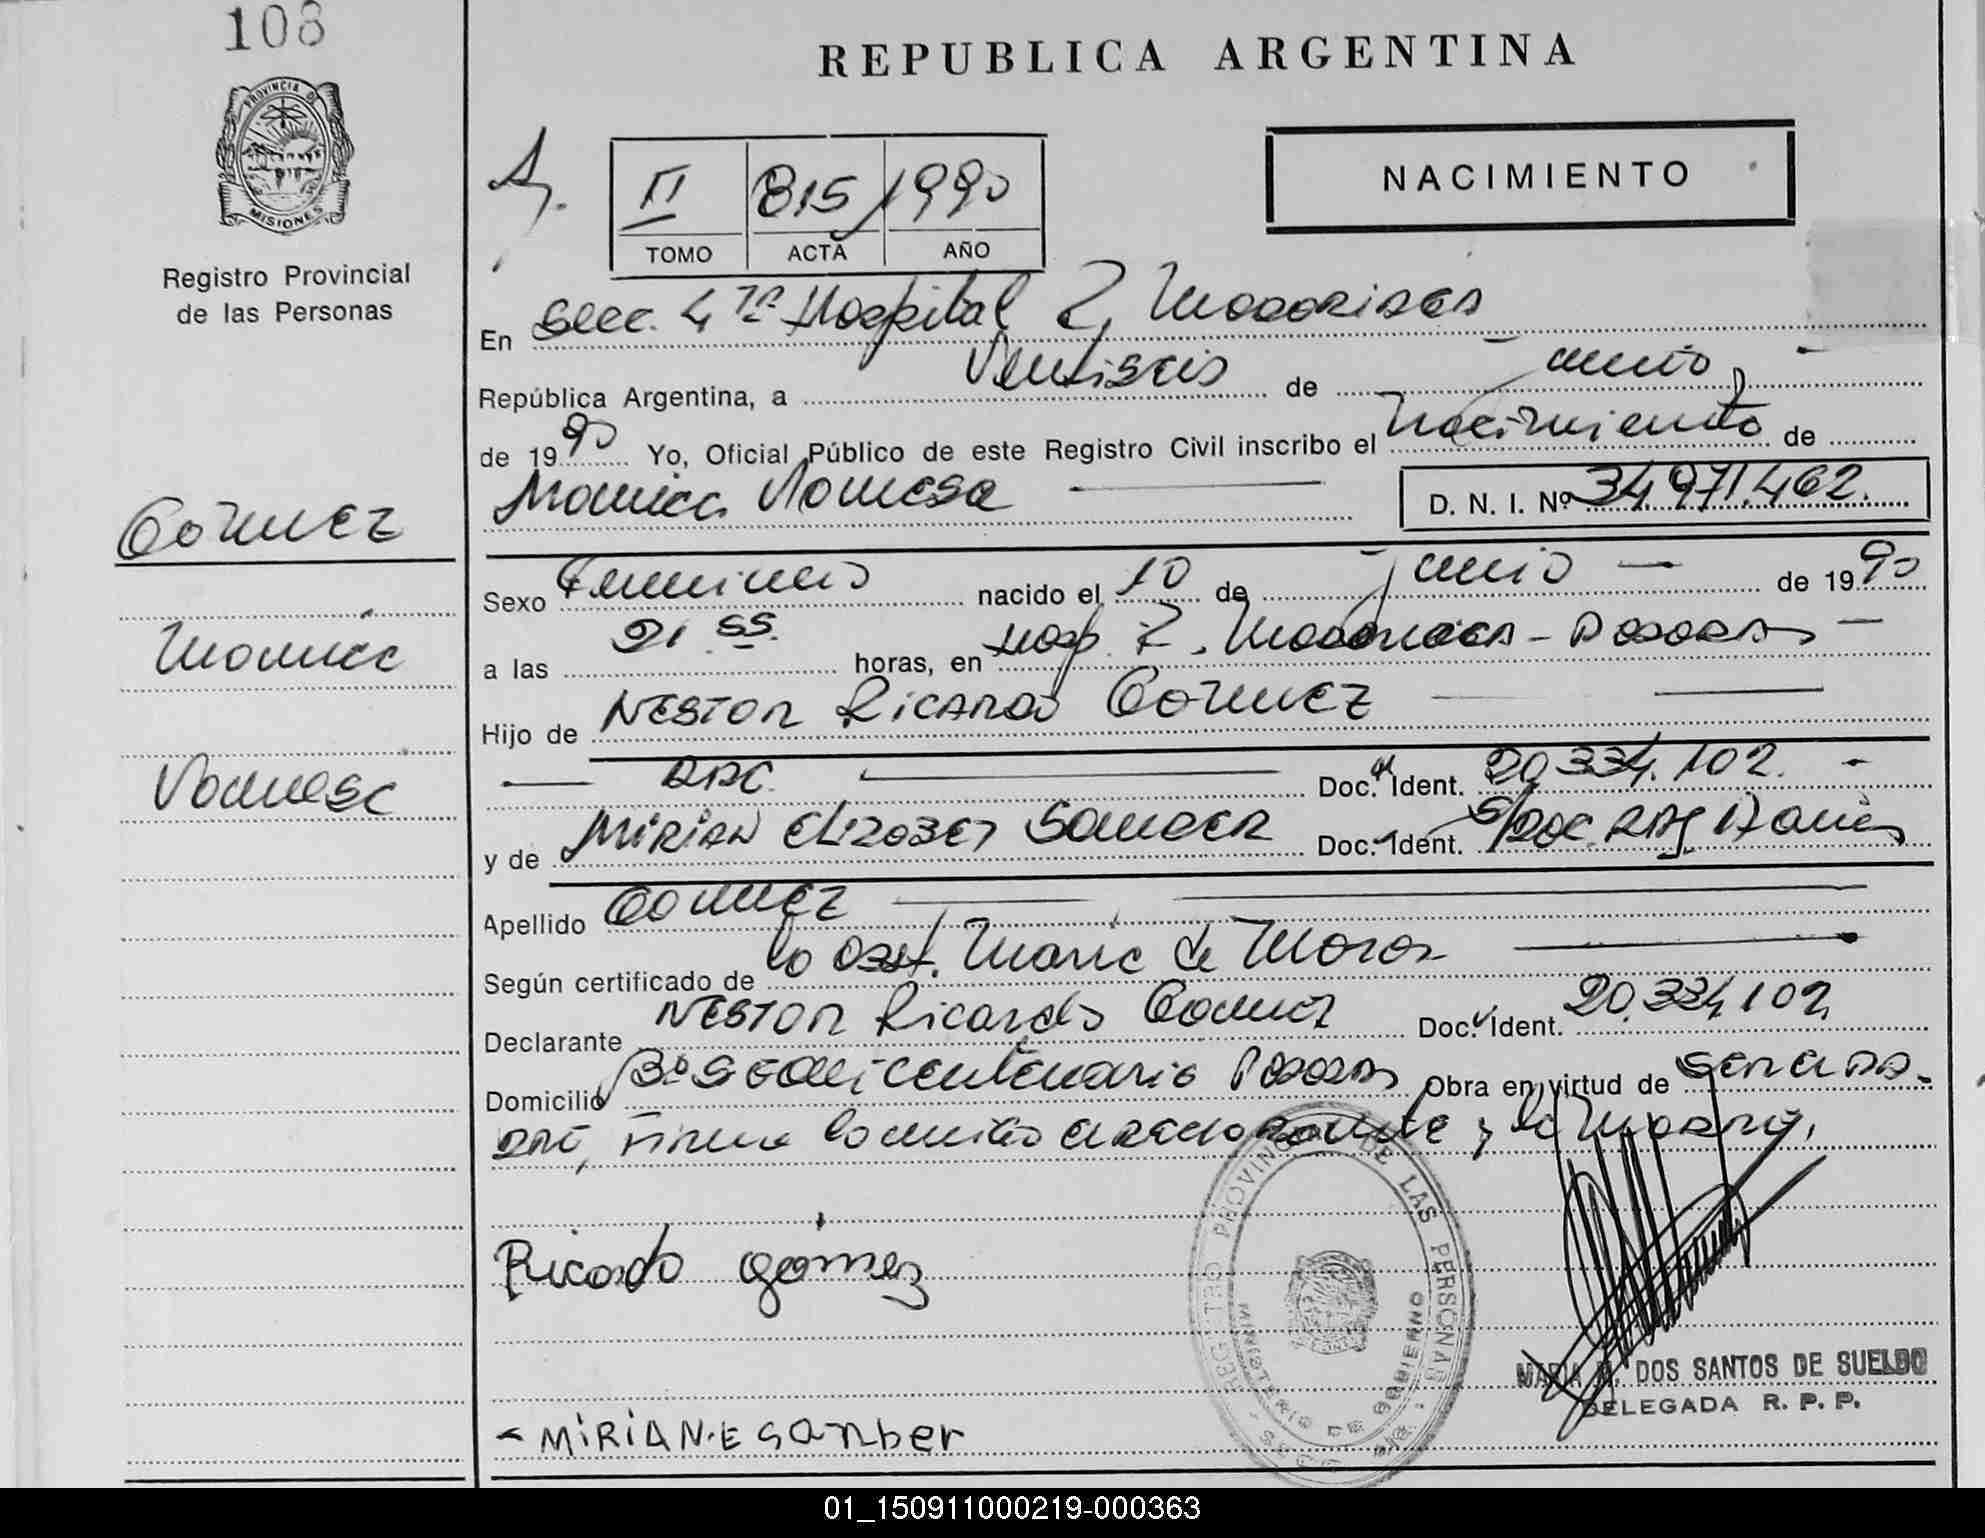 108
REPUBLICA ARGENTINA
PROVINCIA DE
MISIONES
Registro Provincial
de las Personas
NACIMIENTO
II 815 1990
TOMO ACTA AÑO
En Secc. 4ta Hospital R. Madariaga
República Argentina, a Veintiseis de Junio
de 1990 Yo, Oficial Público de este Registro Civil inscribo el Nacimiento de
Monica Vanesa D. N. I. Nº 34.971.462.
Gomez
Monica
Vanesa
Sexo Femenino nacido el 10 de junio de 1990
a las 21.55. horas, en Hosp. R. Madariaga - Posadas
Hijo de NESTOR RICARDO GOMEZ
arg. Doc. Ident. 20.334.102.
y de MIRIAN ELIZABET SANDER Doc. Ident. S/Doc. arg.
Apellido GOMEZ
Según certificado de la Obst. Maria de
Declarante NESTOR Ricardo Gomez Doc. Ident. 20.334.102
Domicilio Bº Sesquicentenario Posadas Obra en virtud de
firma conmigo el declarante y la Madre,
Ricardo gómez
REGISTRO PROVINCIAL DE LAS PERSONAS
MINISTERIO DE GOBIERNO
MARIA DOS SANTOS DE SUELDO
DELEGADA R. P. P.
- MIRIAN.E sander
01_150911000219-000363